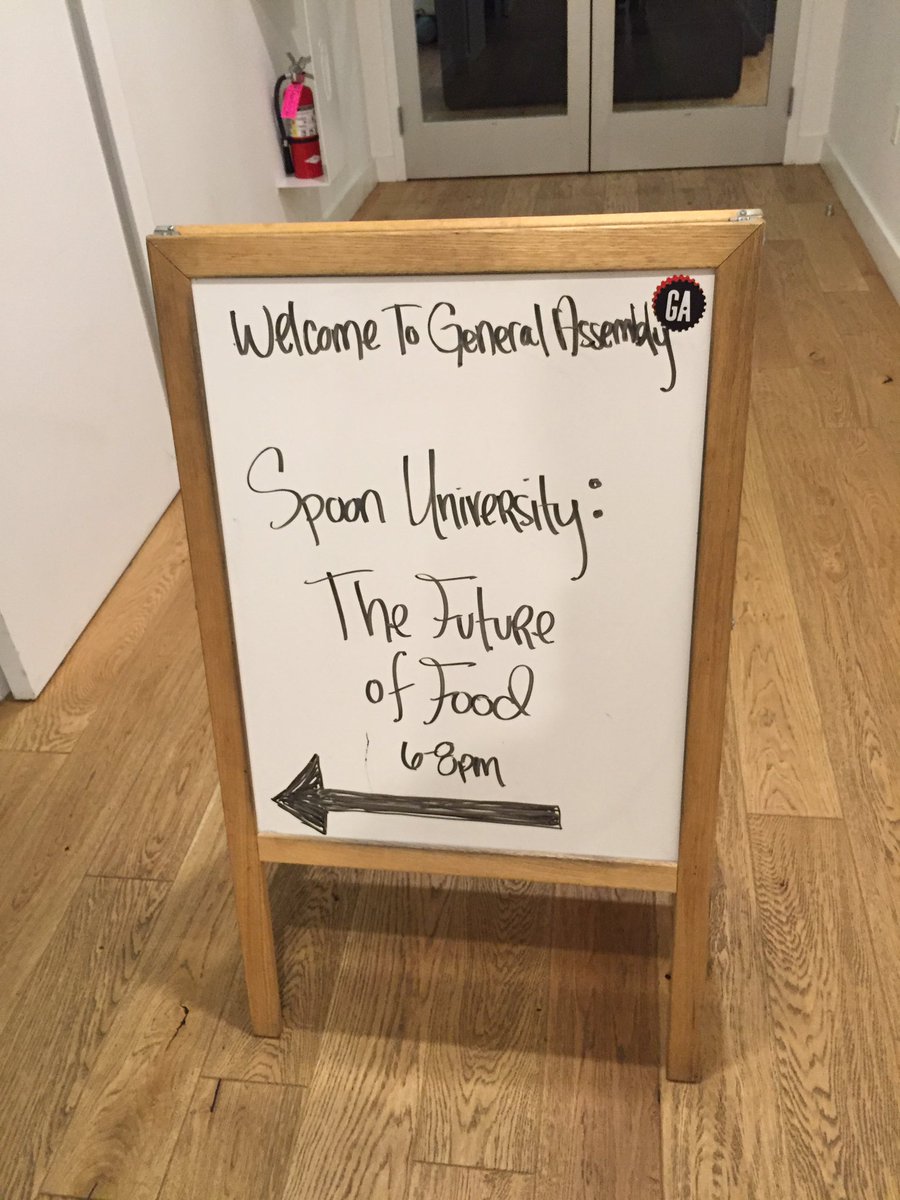 Welcome To General Assembly
GA
Spoon University:
The Future
of Food
6-8pm